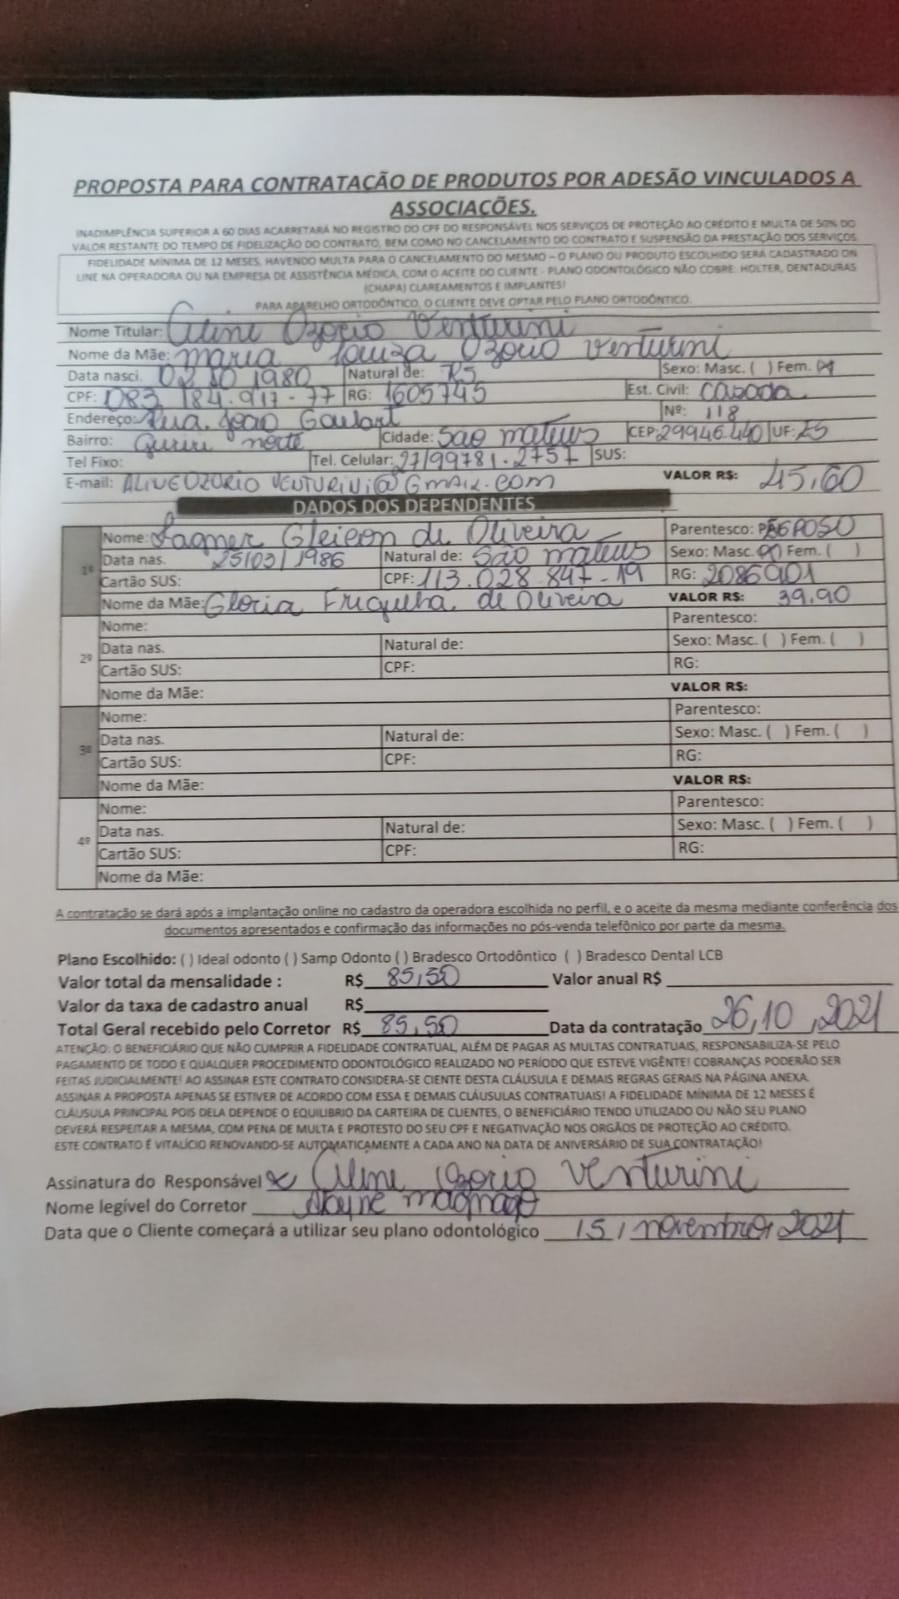 PROPOSTA PARA CONTRATAÇÃO DE PRODUTOS POR ADESÃO VINCULADOS A
ASSOCIAÇÕES.
INADIMPLÊNCIA SUPERIOR A 60 DIAS ACARRETARÁ NO REGISTRO DO CPF DO RESPONSÁVEL NOS SERVIÇOS DE PROTEÇÃO AO CRÉDITO E MULTA DE 50% DO
VALOR RESTANTE DO TEMPO DE FIDELIZAÇÃO DO CONTRATO, BEM COMO NO CANCELAMENTO DO CONTRATO E SUSPENSÃO DA PRESTAÇÃO DOS SERVIÇOS.
FIDELIDADE MÍNIMA DE 12 MESES, HAVENDO MULTA PARA O CANCELAMENTO DO MESMO – O PLANO OU PRODUTO ESCOLHIDO SERÁ CADASTRADO ON
LINE NA OPERADORA OU NA EMPRESA DE ASSISTÊNCIA MÉDICA, COM O ACEITE DO CLIENTE - PLANO ODONTOLÓGICO NÃO COBRE: HOLTER, DENTADURAS
(CHAPA) CLAREAMENTOS E IMPLANTES!
PARA APARELHO ORTODÔNTICO, O CLIENTE DEVE OPTAR PELO PLANO ORTODÔNTICO.
Nome Titular: Aline Ozorio Venturini
Nome da Mãe: Maria Louiza Ozorio Venturini
Data nasci. 02 10 1980 Natural de: ES Sexo: Masc. ( ) Fem. (X)
CPF: 083 184.917-77 RG: 1605745 Est. Civil: Casada
Endereço: Rua João Goulart Nº: 118
Bairro: Guriri norte Cidade: São mateus CEP: 29946.440 UF: ES
Tel Fixo: Tel. Celular: 27/99781.2757 SUS:
E-mail: ALINEOZORIO VENTURINI@Gmail.com VALOR R$: 45,60
DADOS DOS DEPENDENTES
1º Nome: Gleison de Oliveira Parentesco: ESPOSO
Data nas. 25/03/1986 Natural de: São mateus Sexo: Masc. (X) Fem. ( )
Cartão SUS: CPF: 113.028.847-19 RG: 2086901
Nome da Mãe: Gloria de Oliveira VALOR R$: 39,90
2º Nome: Parentesco:
Data nas. Natural de: Sexo: Masc. ( ) Fem. ( )
Cartão SUS: CPF: RG:
Nome da Mãe: VALOR R$:
3º Nome: Parentesco:
Data nas. Natural de: Sexo: Masc. ( ) Fem. ( )
Cartão SUS: CPF: RG:
Nome da Mãe: VALOR R$:
4º Nome: Parentesco:
Data nas. Natural de: Sexo: Masc. ( ) Fem. ( )
Cartão SUS: CPF: RG:
Nome da Mãe:
A contratação se dará após a implantação online no cadastro da operadora escolhida no perfil, e o aceite da mesma mediante conferência dos
documentos apresentados e confirmação das informações no pós-venda telefônico por parte da mesma.
Plano Escolhido: ( ) Ideal odonto ( ) Samp Odonto ( ) Bradesco Ortodôntico ( ) Bradesco Dental LCB
Valor total da mensalidade : R$ 85,50 Valor anual R$
Valor da taxa de cadastro anual R$
Total Geral recebido pelo Corretor R$ 85,50 Data da contratação 26,10,2021
ATENÇÃO: O BENEFICIÁRIO QUE NÃO CUMPRIR A FIDELIDADE CONTRATUAL, ALÉM DE PAGAR AS MULTAS CONTRATUAIS, RESPONSABILIZA-SE PELO
PAGAMENTO DE TODO E QUALQUER PROCEDIMENTO ODONTOLÓGICO REALIZADO NO PERÍODO QUE ESTEVE VIGÊNTE! COBRANÇAS PODERÃO SER
FEITAS JUDICIALMENTE! AO ASSINAR ESTE CONTRATO CONSIDERA-SE CIENTE DESTA CLÁUSULA E DEMAIS REGRAS GERAIS NA PÁGINA ANEXA.
ASSINAR A PROPOSTA APENAS SE ESTIVER DE ACORDO COM ESSA E DEMAIS CLÁUSULAS CONTRATUAIS! A FIDELIDADE MÍNIMA DE 12 MESES É
CLÁUSULA PRINCIPAL POIS DELA DEPENDE O EQUILIBRIO DA CARTEIRA DE CLIENTES, O BENEFICIÁRIO TENDO UTILIZADO OU NÃO SEU PLANO
DEVERÁ RESPEITAR A MESMA, COM PENA DE MULTA E PROTESTO DO SEU CPF E NEGATIVAÇÃO NOS ORGÃOS DE PROTEÇÃO AO CRÉDITO.
ESTE CONTRATO É VITALÍCIO RENOVANDO-SE AUTOMATICAMENTE A CADA ANO NA DATA DE ANIVERSÁRIO DE SUA CONTRATAÇÃO!
Assinatura do Responsável x Aline Ozorio Venturini
Nome legível do Corretor
Data que o Cliente começará a utilizar seu plano odontológico 15/novembro/2021